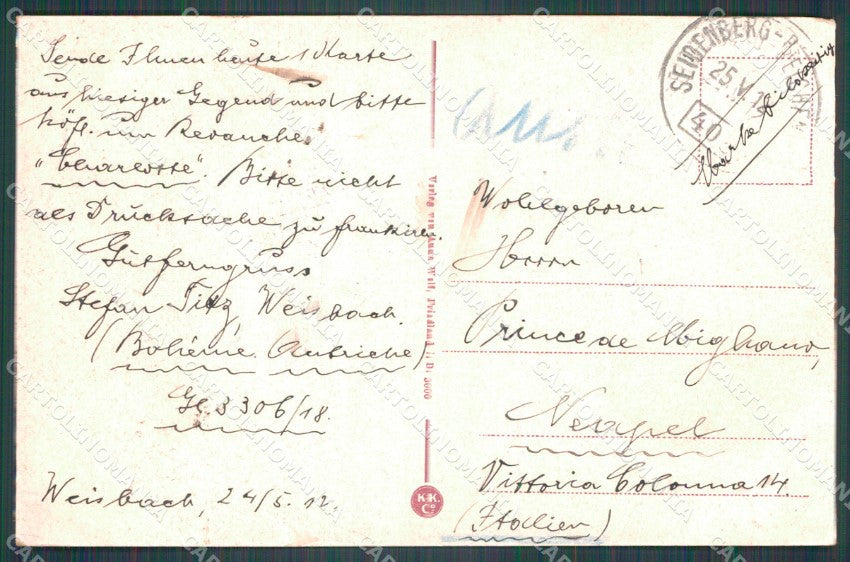 Sende Ihnen heute 1 Karte
aus hiesiger Gegend und bitte
höfl. um Revanche.
"Charlotte". Bitte nicht
als Drucksache zu frankiren.
Gutferngruss
Stefan Titz, Weisbach.
(Bohême Autriche)
Gl. 3306/18.
Weisbach, 24/5. 12.
Verlag von Anna Wolf, Friedland i. B. 3000
K.K.
Co
SEIDENBERG-
25.V.12
40
Marke bildseitig
Wohlgeboren
Herrn
Prince de Migliano,
Neapel
Vittoria Colonna 14.
(Italien)
CARTOLINOMANIA